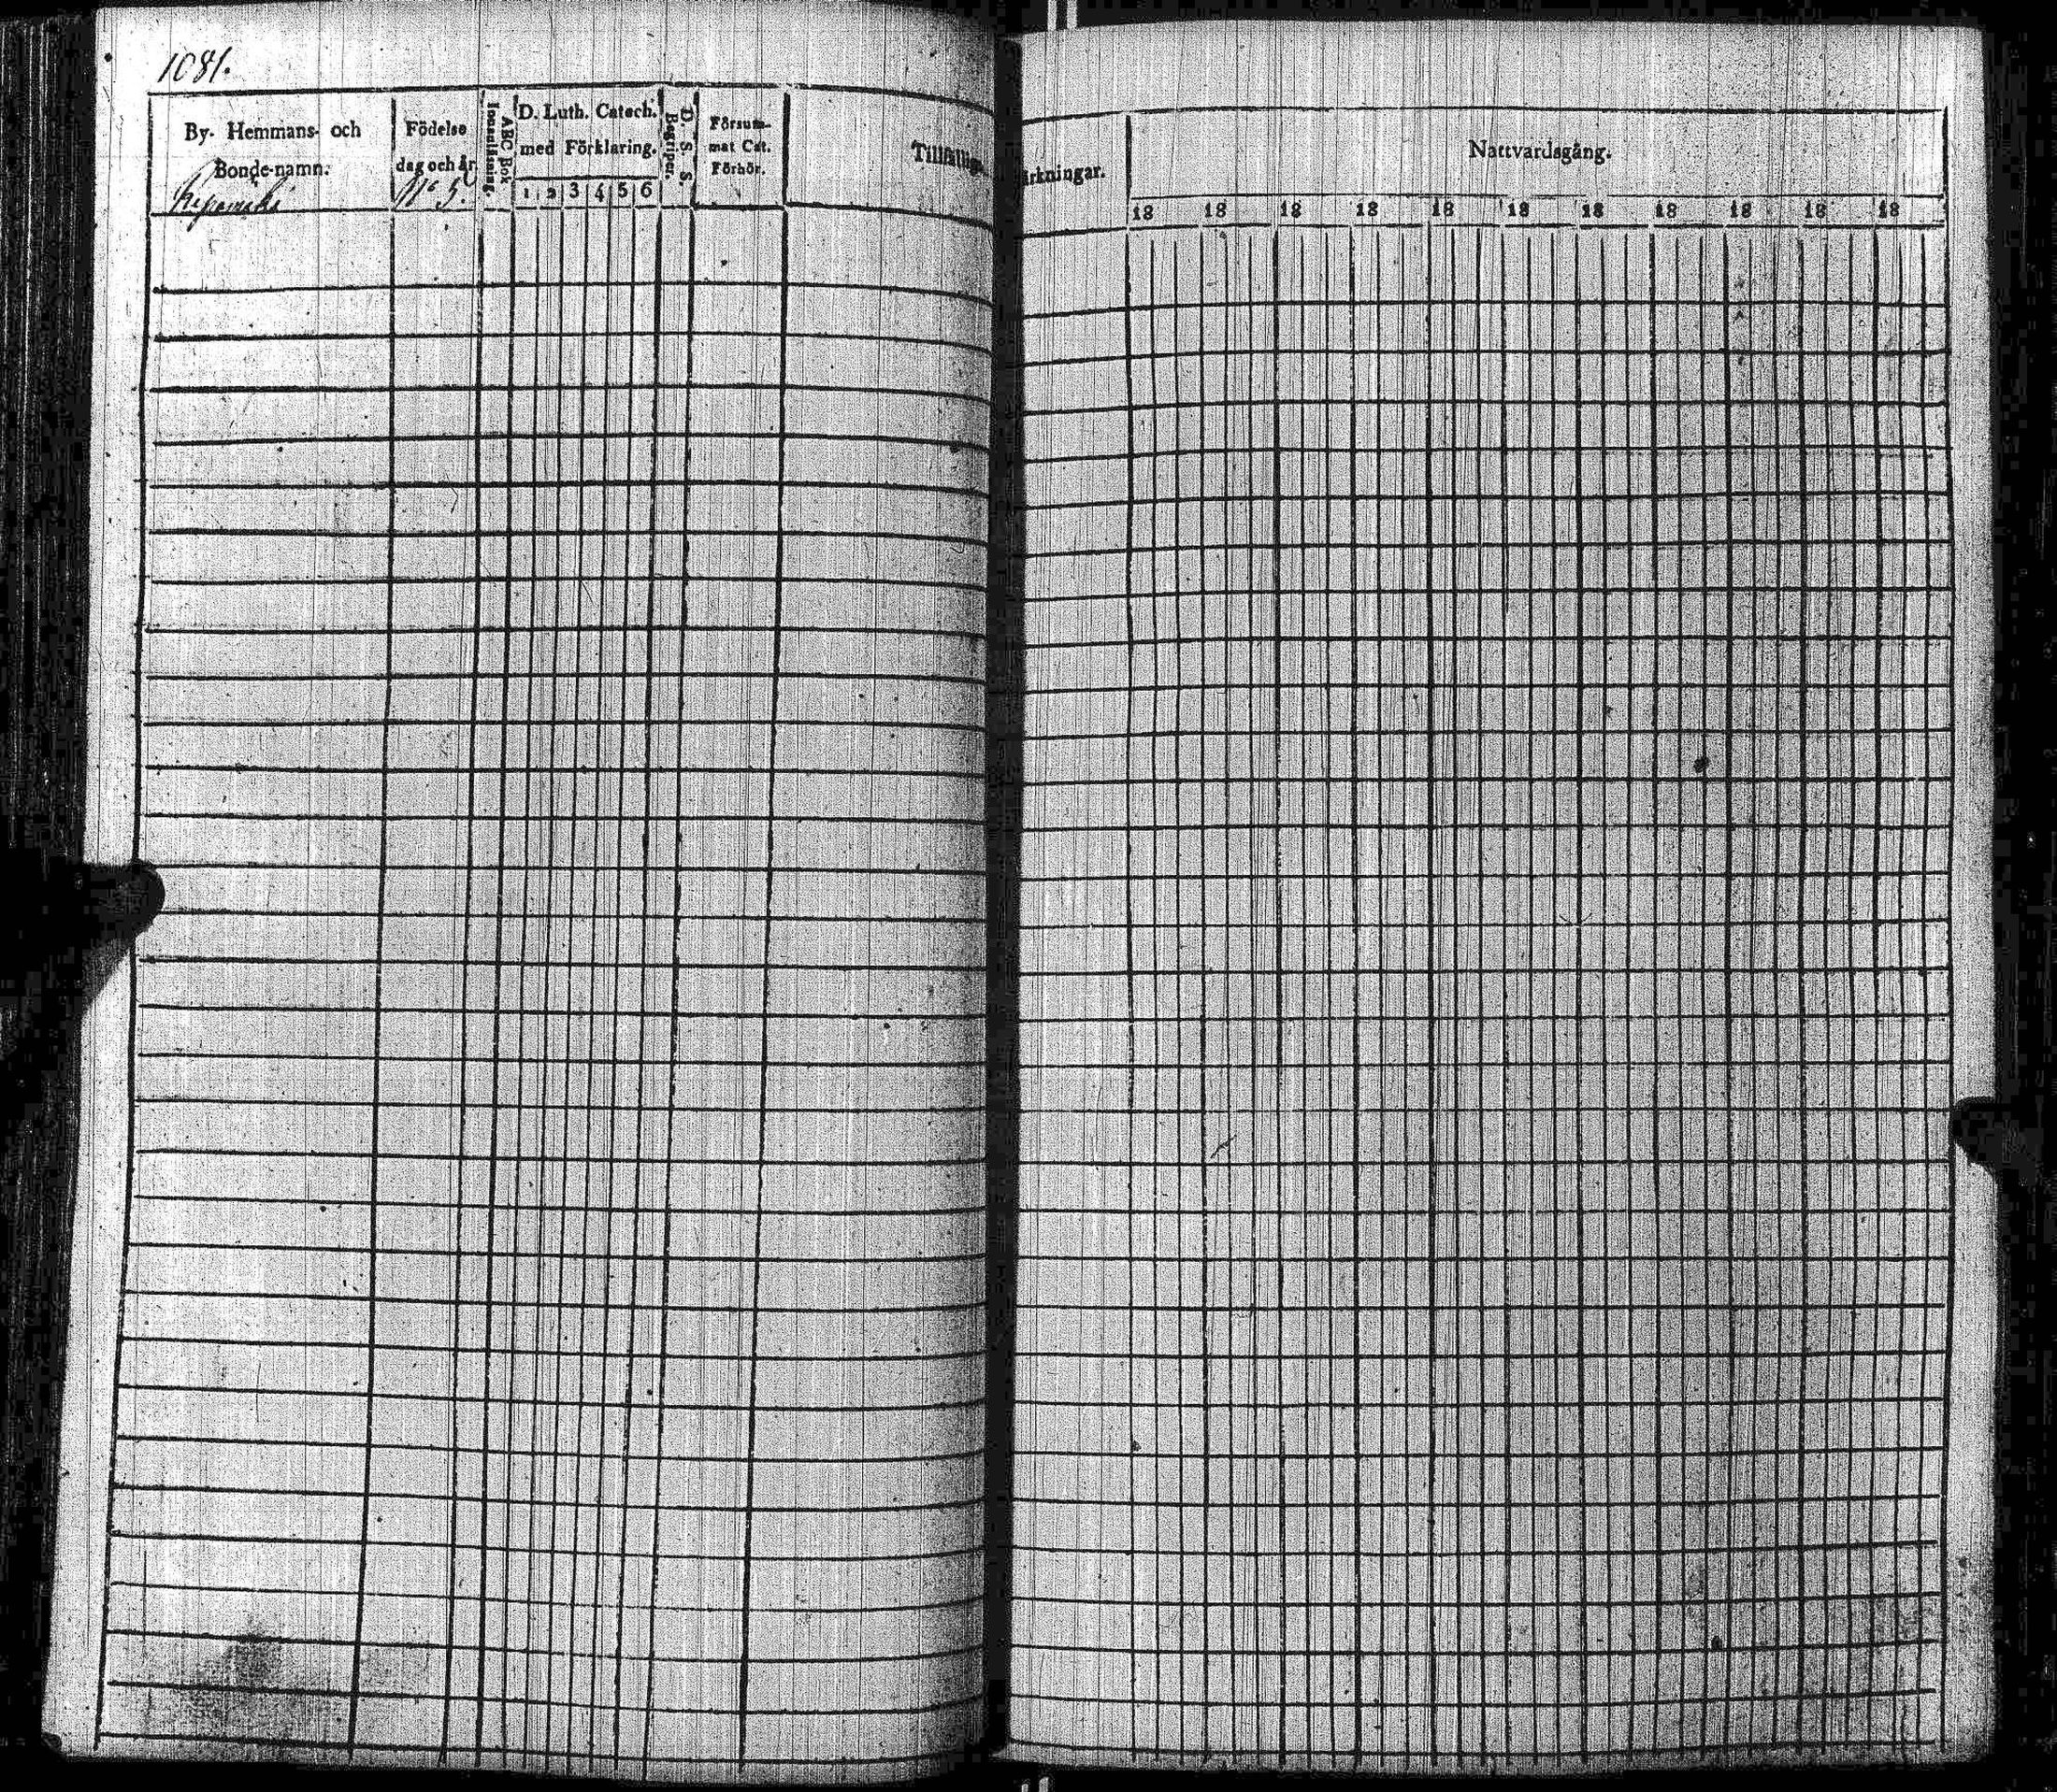 1081.
By- Hemmans- och
Bonde-namn.
Födelse
dag och år.
N:o 5.
ABC Bok
Innanläsning.
D. Luth. Catech.
med Förklaring.
1 2 3 4 5 6
D. S. S.
Begriper.
Försum-
mat Cat.
Förhör.
Tillfällige
ärkningar.
Nattvardsgång.
18 18 18 18 18 18 18 18 18 18 18